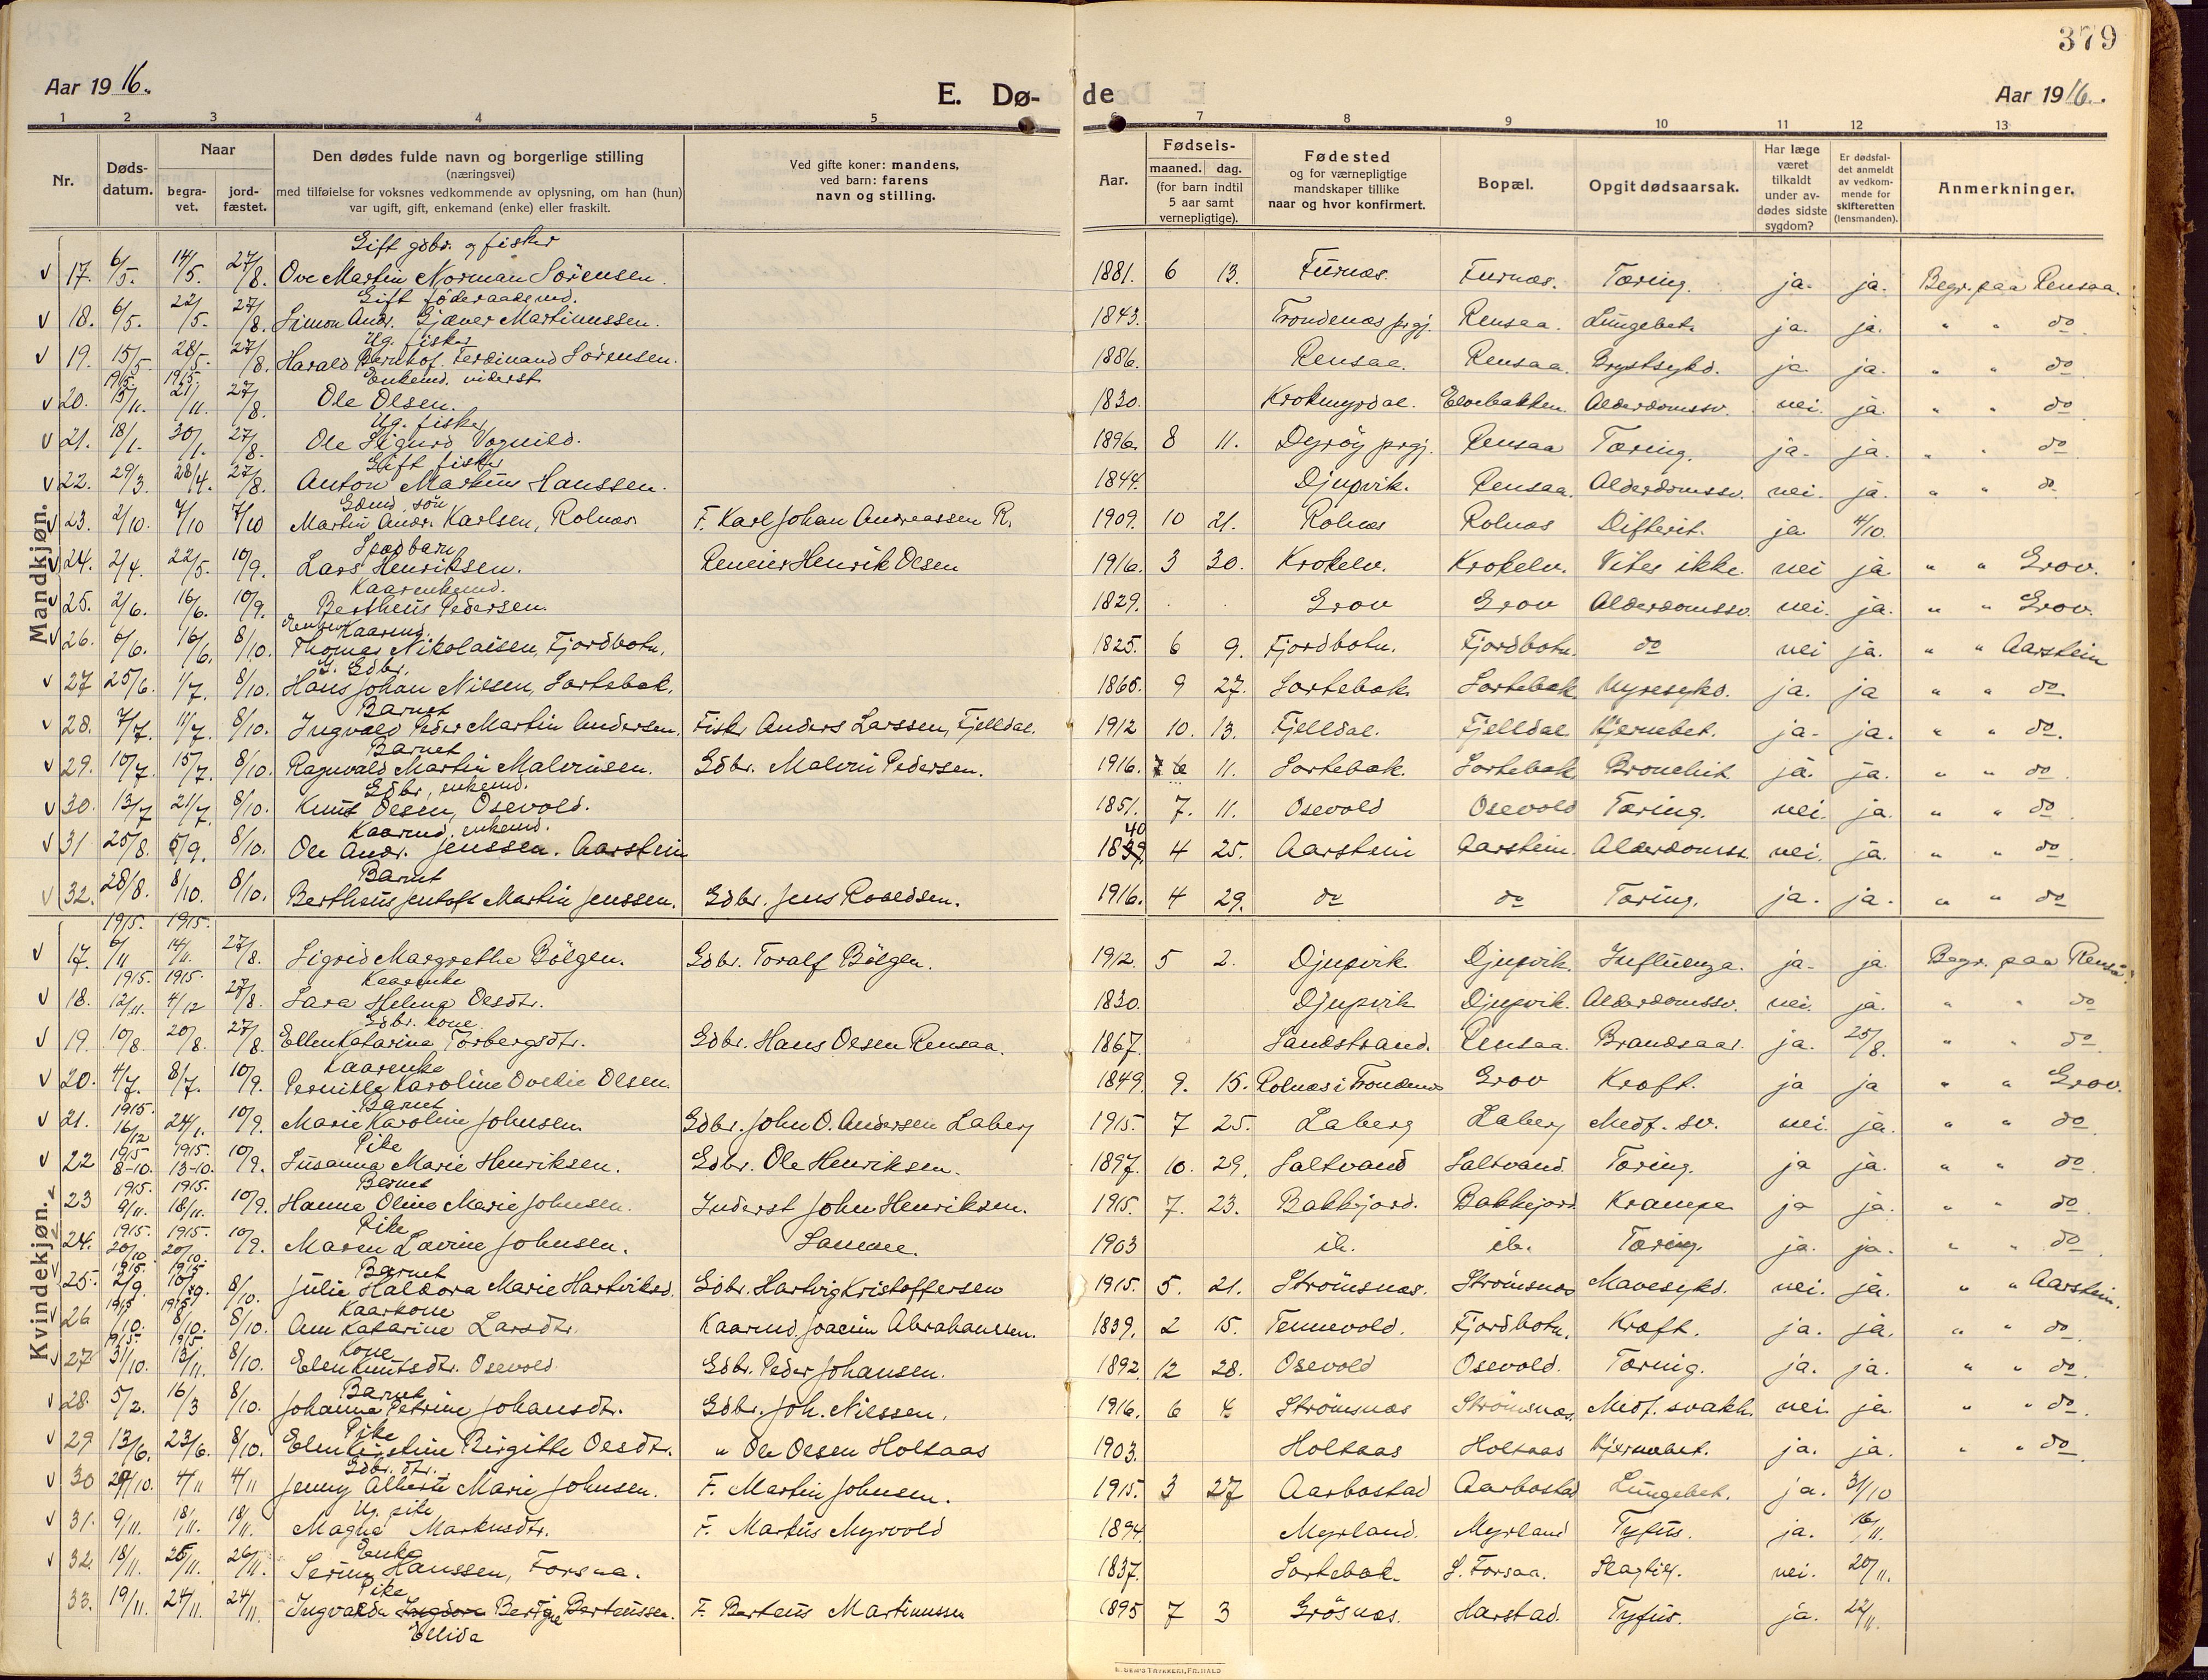 379
Aar 1916.
E. Dø-
de
Aar 1916.
1 2 3 4 5 6 7 8 9 10 11 12 13
Nr.
Døds-
datum.
Naar
begra-
vet.
jord-
fæstet.
Den dødes fulde navn og borgerlige stilling
(næringsvei)
med tilføielse for voksnes vedkommende av oplysning, om han (hun)
var ugift, gift, enkemand (enke) eller fraskilt.
Ved gifte koner: mandens,
ved barn: farens
navn og stilling.
Aar.
Fødsels-
maaned. dag.
(for barn indtil
5 aar samt
vernepligtige).
Fødested
og for værnepligtige
mandskaper tillike
naar og hvor konfirmert.
Bopæl.
Opgit dødsaarsak.
Har læge
været
tilkaldt
under av-
dødes sidste
sygdom?
Er dødsfal-
det anmeldt
av vedkom-
mende for
skifteretten
(lensmanden).
Anmerkninger.
Mandkjøn.
Gift gdbr. og fisker
17. 6/5. 14/5. 27/8. Ove Martin Norman Sørensen. 1881. 6 13. Furnæs. Furnæs. Tæring. ja. ja. Begr. paa Rensaa.
Gift föderaadsmd.
18. 6/5. 22/5. 27/8. Simon Andr. Gjæver Martinussen. 1843. Trondenæs prgj. Rensaa. Lungebet. ja. ja. " " do
Ug. fisker
19. 15/5. 28/5. 27/8. Harald Bernhof. Ferdinand Sørensen. 1886. Rensaa. Rensaa. Brystsykd. ja. ja. " " do
1915. 1915. Enkemd. inderst
20. 13/11. 21/11. 27/8. Ole Olsen. 1830. Krokmyrdal. Elvebakken. Alderdomssv. nei. ja. " " do
Ug. fisker
21. 18/1. 30/1. 27/8. Ole Sigurd Vognild. 1896. 8 11. Dyröy prgj. Rensaa Tæring. ja. ja. " " do
Gift fisker
22. 29/3. 28/4. 27/8. Anton Markus Hanssen. 1844. Djupvik. Rensaa. Alderdomssv. nei. ja. " " do
Gdmd. sön
23. 2/10. 7/10 7/10 Martin Andr. Karlsen, Rolnæs F. Karl Johan Andreassen R. 1909. 10 21. Rolnæs Rolnæs Difterit. ja 4/10.
Spædbarn
24. 2/4. 22/5. 10/9. Lars Henriksen. Reneier Henrik Olsen 1916. 3 30. Krokelv. Krokelv. Vites ikke. nei ja " " Grov.
Kaarenkemd.
25. 2/6. 16/6. 10/9. Bertheus Pedersen. 1829. Grov Grov Alderdomssv. nei. ja. " " Grov.
Kaarmd.
26. 6/6. 16/6. 8/10. Thomas Nikolaisen, Fjordbotn. 1825. 6 9. Fjordbotn. Fjordbotn. do nei ja. " " Aarstein
G. Gdbr.
27 25/6. 1/7. 8/10. Hans Johan Nilsen, Sortebek. 1865. 9 27. Sortebek. Sortebek Nyresykd. ja. ja " " do
Barnet
28. 7/7. 11/7. 8/10. Ingvald Peder Martin Andersen. Fisker Anders Larssen, Fjelldal. 1912 10. 13. Fjelldal. Fjelldal Hjernebet. ja. ja. " " do.
Barnet
29. 10/7. 15/7. 8/10. Ragnvald Martin Malvinsen. Gdbr. Malvin Pedersen. 1916. 6 11. Sortebek. Sortebek Bronchit ja. ja. " " do
Gdbr., enkemd.
30. 13/7 21/7. 8/10. Knut Olsen, Osevold. 1851. 7. 11. Osevold Osevold Tæring. nei. ja. " " do
Kaarmd. enkemd.
31 25/8. 5/9. 8/10. Ole Andr. Jenssen. Aarstein 1839 40 4 25. Aarstein Aarstein. Alderdomss. nei. ja. " " do
Barnet
32. 28/8. 8/10. 8/10. Bertheus Jentoft Martin Jenssen. Gdbr. Jens Roaldsen. 1916. 4 29. do do Tæring. ja. ja. " " do
Kvindekjøn.
1915. 1915.
17. 6/11 14/11. 27/8. Sigrid Margrethe Bölgen. Gdbr. Toralf Bölgen. 1912. 5 2. Djupvik. Djupvik. Influenza. ja. ja Begr. paa Rensaa.
1915. 1915. Kaarenke
18. 12/11. 4/12 27/8. Sara Helma Olsdtr. 1830. Djupvik Djupvik. Alderdomssv. nei. ja. " " do
Gdbr. kone.
19. 10/8. 20/8. 27/8. Ellen Katarina Torbergsdtr. Gdbr. Hans Olsen Rensaa. 1867. Sandstrand. Rensaa. Brandsaar. ja. 25/8. " " do
Kaarenke
20. 4/7. 8/7. 10/9. Pernille Karoline Ovedie Olsen. 1849. 9. 15. Rolnæs i Trondenæs Grov Kræft. ja ja " " Grov.
1915. Barnet
21. 16/12 24/1. 10/9. Marie Karolin Johnsen. Gdbr. John O. Andersen Laberg 1915. 7 25. Laberg Laberg Medf. sv. nei. ja. " " do
1915 1915. Pike
22 8-10. 13-10. 10/9. Susanna Marie Henriksen. Gdbr. Ole Henriksen. 1897. 10. 29. Saltvand Saltvand. Tæring. ja ja. " " do
1915. 1915. Barnet
23 9/11. 18/11. 10/9. Hanna Oline Marie Johnsen. Inderst John Henriksen. 1915. 7. 23. Bakkejord. Bakkejord. Krampe ja ja. " " do
1915. 1915. Pike
24. 20/10 20/10. 10/9. Maren Lavine Johnsen. Samme. 1903 ib. ib. Tæring. ja. ja. " " do
1915. 1915 Barnet
25. 2/9. 10/9. 8/10. Julie Haldora Marie Hartviksd. Gdbr. Hartvig Kristoffersen 1915. 5. 21. Strömsnæs. Strömsnæs Mavesykd. nei. ja. " " Aarstein.
1915 1915 Kaarkone
26 /10. 8/10. 8/10. Ane Katarine Larsdtr. Kaarmd. Joacim Abrahamsen. 1839. 2 15. Tennevold. Fjordbotn. Kræft. ja. ja. " " do
1915. 1915 Kone
27 31/10. 13/11. 8/10. Elen Knutsdtr. Osevold. Gdbr. Peder Johansen. 1892 12 28. Osevold Osevold. Tæring. ja. ja. " " do
Barnet
28. 5/2. 16/3 8/10. Johanna Petrine Johansdtr. Gdbr. Joh. Nilssen. 1916. 6 Strömsnæs Strömsnæs. Medf. svakh. nei. ja. " " do
Pike
29 13/6. 23/6. 8/10. Elen Kirstine Birgitte Olsdtr. " Ole Olsen Holsaas 1903. Holsaas Holsaas Hjernebet. ja. ja. " " do
Gdbr. dtr.
30 29/10. 4/11 4/11 Jenny Alberte Marie Johnsen. F. Martin Johnsen. 1915. 3 27 Aarbostad Aarbostad Lungebet. ja. 31/10
Ug. pike
31. 9/11. 18/11. 18/11. Magna Markusdtr. F. Markus Myrvold 1894. Myrland. Myrland Tyfus. ja. 16/11.
Enke
32. 18/11. 26/11. 26/11. Serina Hanssen, Forsaa. 1837. Sortebek. S. Forsaa. Slagtilf. nei. 20/11.
Pike
33. 19/11. 24/11. 24/11. Ingvalda Bertine Berteussen. F. Berteus Martinussen 1895 7 3 Grösnes. Harstad. Tyfus. ja. 22/11.
Ellida